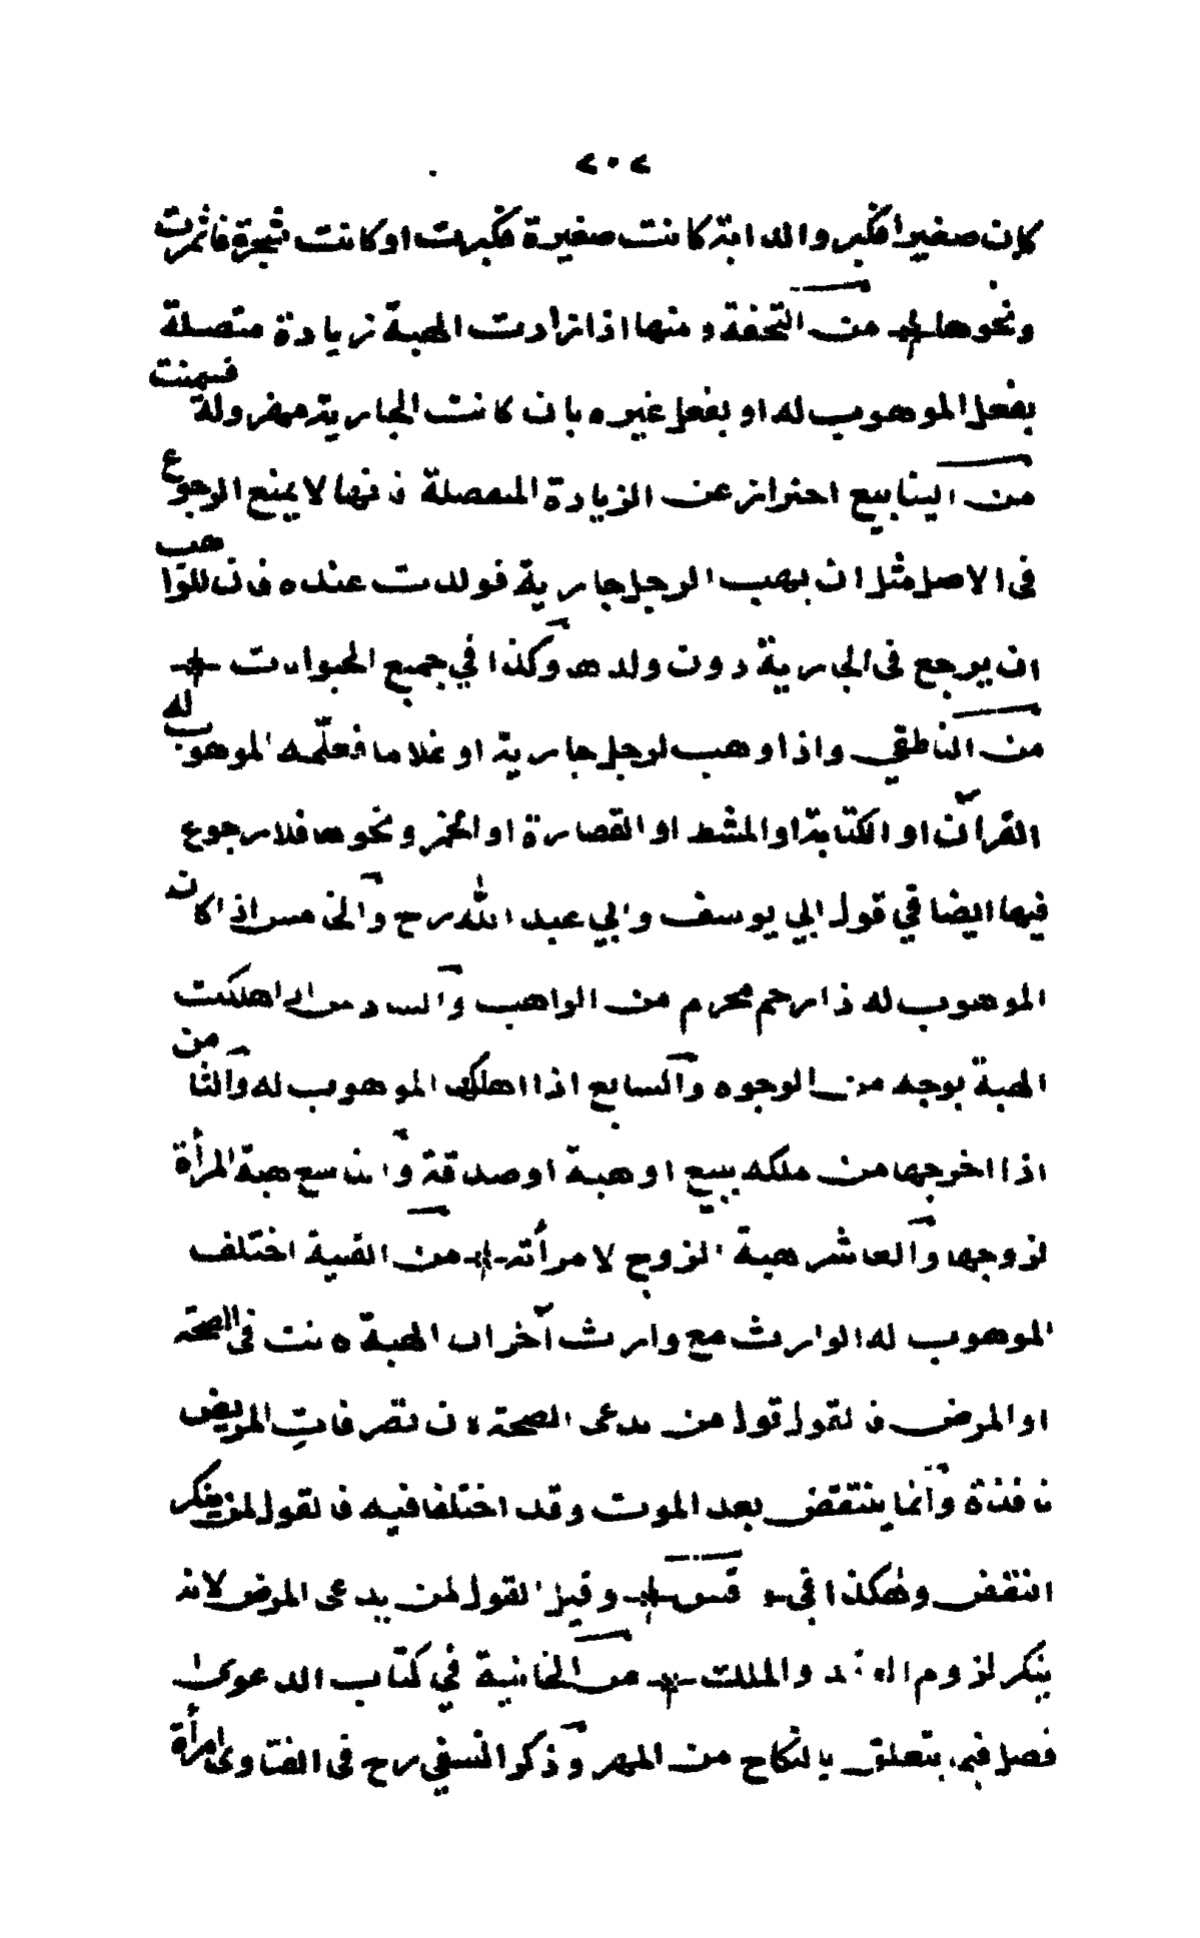 ٢٠٢
كان صغيرا فكبر والدابة كانت صغيرة فكبرت او كانت شجرة فاثمرت
ونحوها من التحفة ومنها اذا زادت الهبة زيادة متصلة
بفعل الموهوب له او بفعل غيره بان كانت الجارية مهزولة فسمنت
من الينابيع احتراز عن الزيادة المنفصلة فانها لا يمنع الرجوع
فى الاصل مثل ان يهب الرجل جارية فولدت عنده فان للواهب
ان يرجع فى الجارية دون ولدها وكذا في جميع الحيوانات
من الناطقي واذا وهب لرجل جارية او غلاما فعلّمه الموهوب له
القرآن او الكتابة او المشط او القصارة او الخبز ونحوها فلا رجوع
فيها ايضا في قول ابي يوسف وابي عبد الله رح والخامس اذا كان
الموهوب له ذا رحم محرم من الواهب والسادس اذا هلكت
الهبة بوجه من الوجوه والسابع اذا اهلك الموهوب له والثامن
اذا اخرجها من ملكه ببيع او هبة او صدقة والتاسع هبة المرأة
لزوجها والعاشر هبة الزوج لامرأته من القنية اختلف
الموهوب له الوارث مع وارث آخر ان الهبة كانت فى الصحة
او المرض فالقول قول من يدعى الصحة لان تصرفات المريض
نافذة وانما ينتقض بعد الموت وقد اختلفا فيه فالقول لمن ينكر
النقض وهكذا في وقيل القول لمن يدعى المرض لانه
ينكر لزوم العقد والملك من الخانية في كتاب الدعوى
فصل فيما يتعلق بالنكاح من المهر وذكر النسفي رح فى الفتاوى امرأة